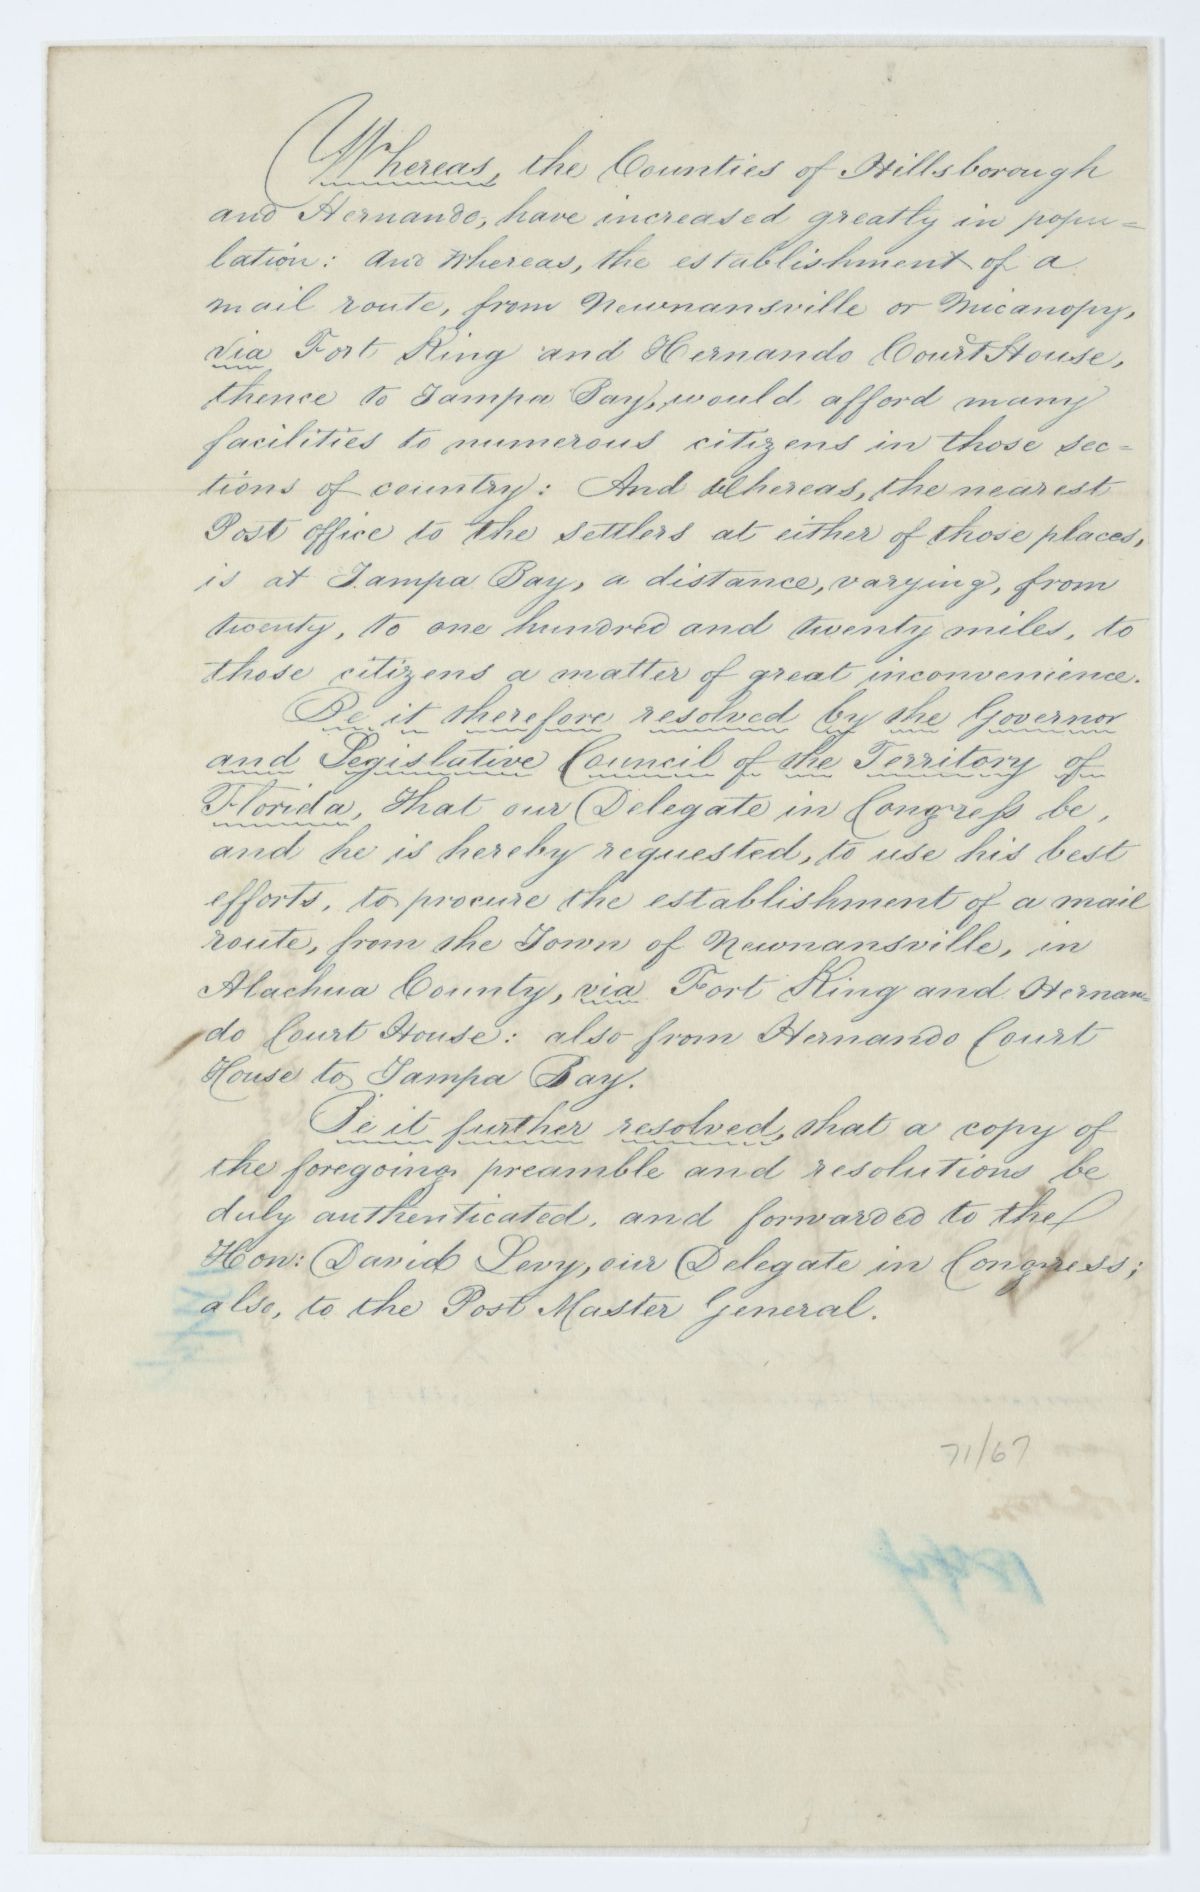 Whereas, the Counties of Hillsborough
and Hernando, have increased greatly in popu=
lation: And Whereas, the establishment of a
mail route, from Newnansville or Micanopy,
via Fort King and Hernando Court House,
thence to Tampa Bay, would afford many
facilities to numerous citizens in those sec=
tions of country: And Whereas, the nearest
Post office to the settlers at either of those places,
is at Tampa Bay, a distance, varying, from
twenty, to one hundred and twenty miles, to
those citizens a matter of great inconvenience.
Be it therefore resolved by the Governor
and Legislative Council of the Territory of
Florida, That our Delegate in Congress be,
and he is hereby requested, to use his best
efforts, to procure the establishment of a mail
route, from the Town of Newnansville, in
Alachua County, via Fort King and Hernan=
do Court House: also from Hernando Court
House to Tampa Bay.
Be it further resolved, that a copy of
the foregoing preamble and resolutions be
duly authenticated, and forwarded to the
Hon: David Levy, our Delegate in Congress;
also, to the Post Master General.
71/67